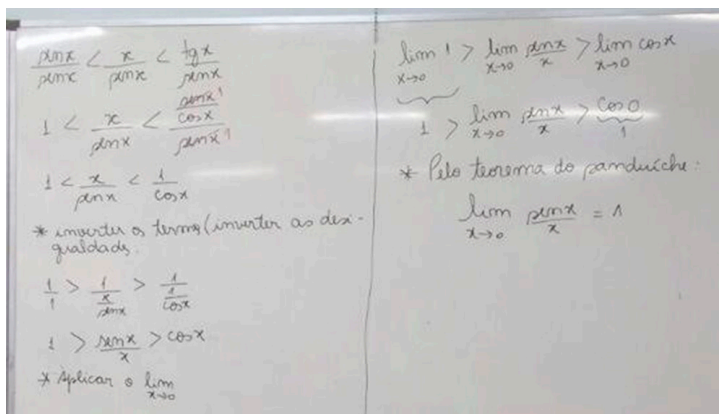 senx/senx < x/senx < tgx/senx
1 < x/senx < (senx¹/cosx)/(senx¹)
1 < x/senx < 1/cosx
* inverter os termos (inverter as desi-
gualdades.
1/1 > 1/(x/senx) > 1/(1/cosx)
1 > senx/x > cosx
* Aplicar o lim x→0
lim x→0 1 > lim x→0 senx/x > lim x→0 cosx
1 > lim x→0 senx/x > cos0
1
* Pelo teorema do sanduíche:
lim x→0 senx/x = 1